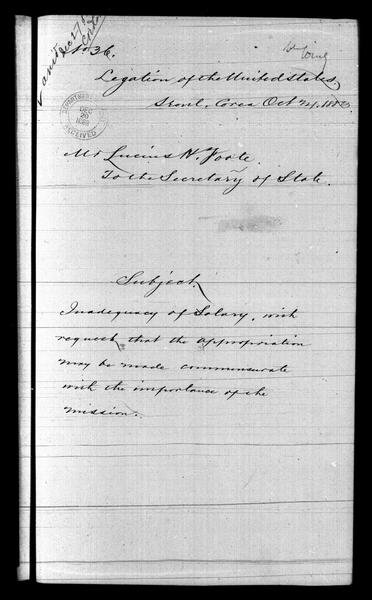 No 36.
Legation of the United States,
Seoul, Corea Oct 24, 1883
DEPARTMENT
DEC
20
1883
RECEIVED
Mr Lucius H. Foote.
To the Secretary of State.
Subject
Inadequacy of Salary, with
request that the appropriation
may be made commensurate
with the importance of the
mission.